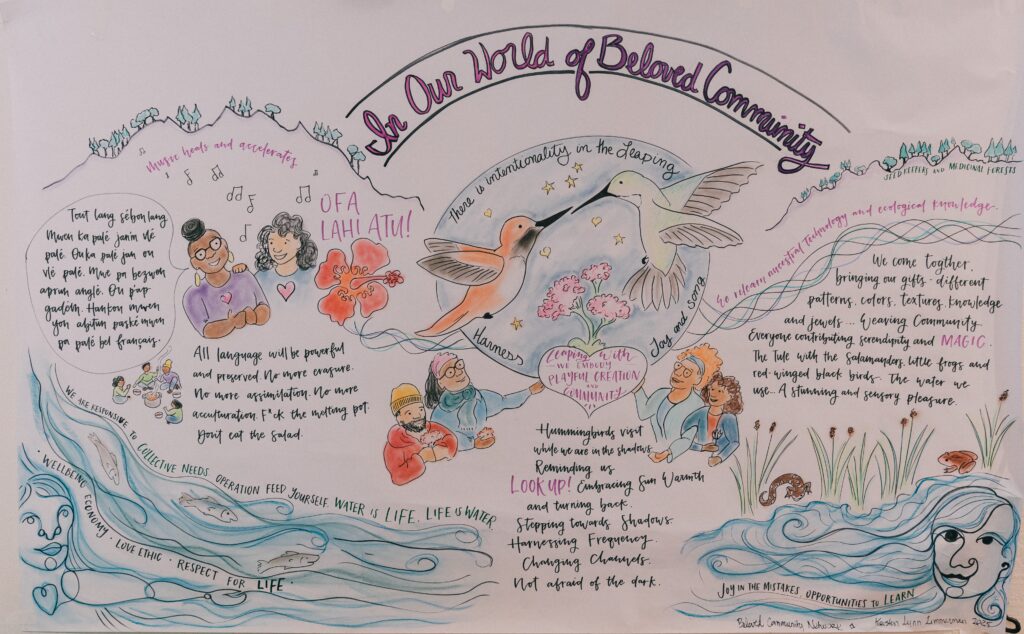 In Our World of Beloved Community
Music heals and accelerates
OFA
LAHI ATU!
Tout lang sé bon lang
Mwen ka palé janm vlé
palé.
palé jan ou
vlé palé. Mwe pa bezwen
aprun anglé. Ou p'ap
yon abitun paské mwen
pa palé bel français.
All language will be powerful
and preserved. No more erasure.
No more assimilation. No more
acculturation. F*ck the melting pot.
Don't eat the salad.
We are responsive to collective needs. Operation Feed Yourself. Water is Life. Life is Water.
· Wellbeing Economy · Love Ethic · Respect for Life ·
There is intentionality in the Leaping
Harness
Joy and Song
Leaping with
we embody
playful creation
and
community
Hummingbirds visit
while we are in the shadows.
Reminding us
LOOK UP! Embracing Sun Warmth
and turning back.
Stepping towards Shadows.
Harnessing Frequency.
Changing Channels.
Not afraid of the dark.
Seed keepers and Medicinal Forests
We relearn ancestral technology and ecological knowledge.
We come togther,
bringing our gifts - different
patterns, colors, textures, knowledge
and jewels ... Weaving Community.
Everyone contributing serendipity and MAGIC.
The Tule with the Salamanders, little frogs and
red-winged black birds. The water we
use. A stunning and sensory pleasure.
Joy in the mistakes. Opportunities to Learn
Beloved Community
Kirsten Lynn Zimmerman 2025